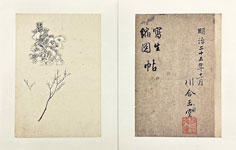 明治二十五年十一月
寫生
縮圖
帖
川合玉堂